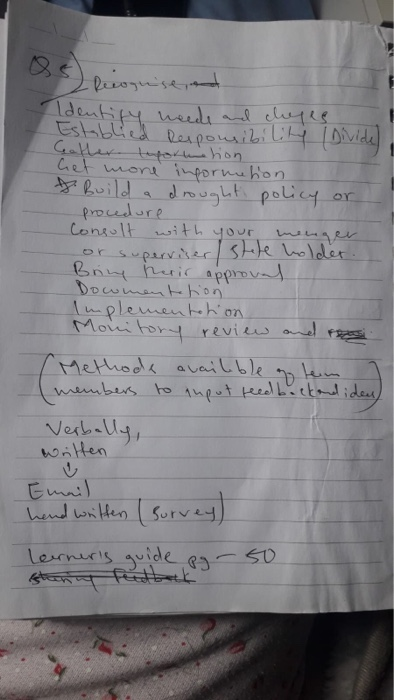 Q 5) Recognise, and
Identify needs and chages
Establied Responsibility (Divide)
Gather information
Get more information
Build a drought policy or
procedure
Consult with your meneger
or superviser / stake holder.
Bring their approval
Documentation
Implementation
Monitory review and
(Methods availible go team
members to input feedback and ideas)
Verbally,
written
↓
Email
hand written (Survey)
learner's guide pg - 50
sharing feedback